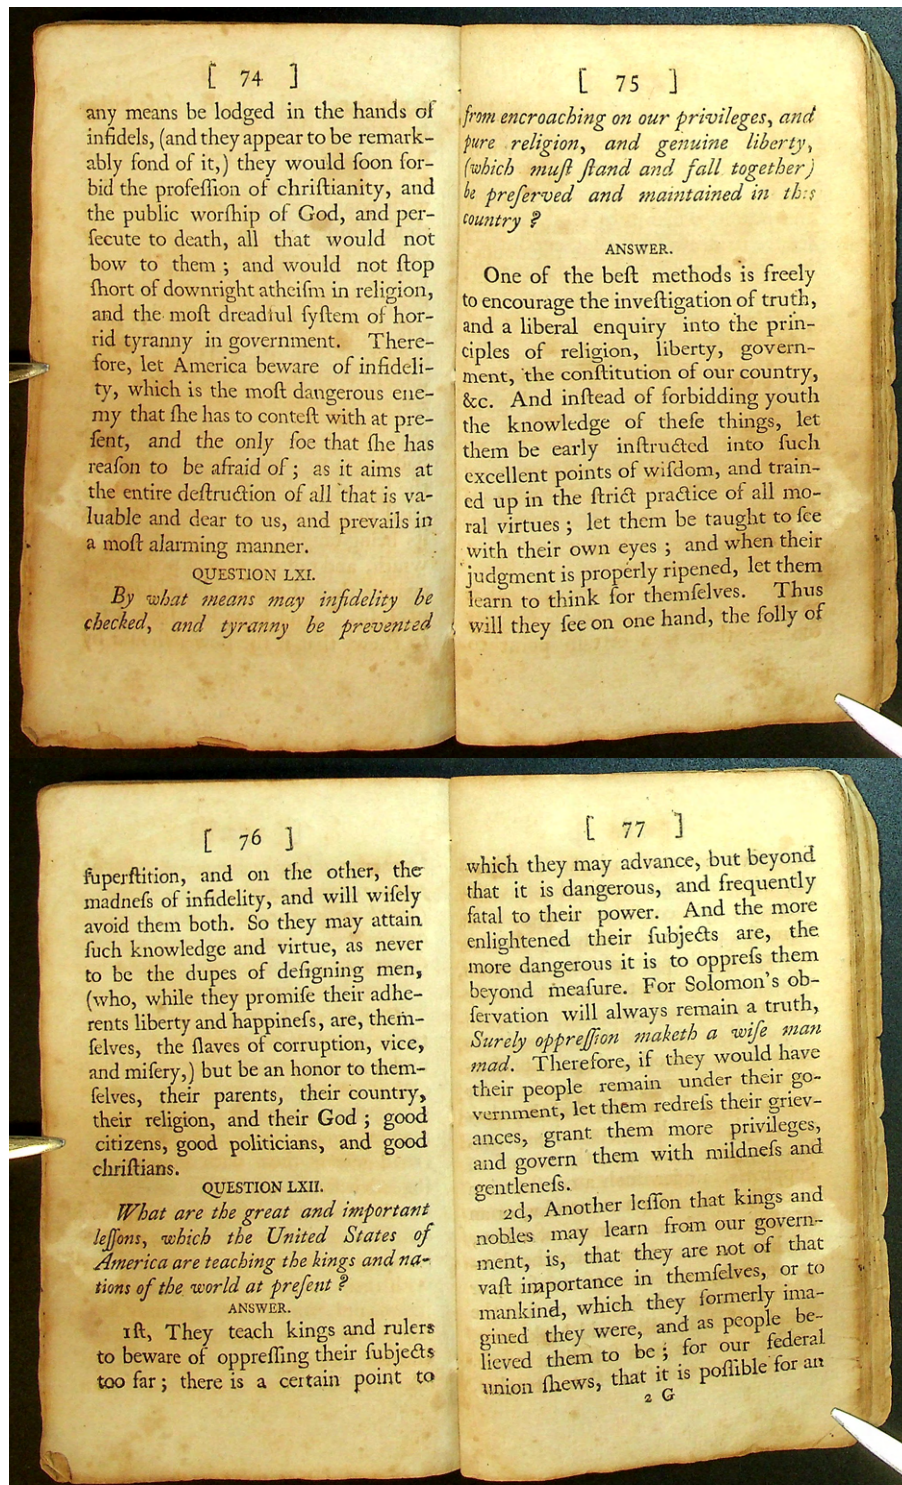 [ 74 ]
any means be lodged in the hands of
infidels, (and they appear to be remark-
ably fond of it,) they would ſoon for-
bid the profeſſion of chriſtianity, and
the public worſhip of God, and per-
ſecute to death, all that would not
bow to them ; and would not ſtop
ſhort of downright atheiſm in religion,
and the moſt dreadful ſyſtem of hor-
rid tyranny in government. There-
fore, let America beware of infideli-
ty, which is the moſt dangerous ene-
my that ſhe has to conteſt with at pre-
ſent, and the only foe that ſhe has
reaſon to be afraid of ; as it aims at
the entire deſtruction of all that is va-
luable and dear to us, and prevails in
a moſt alarming manner.
QUESTION LXI.
By what means may infidelity be
checked, and tyranny be prevented
[ 75 ]
from encroaching on our privileges, and
pure religion, and genuine liberty,
(which muſt ſtand and fall together)
be preſerved and maintained in this
country ?
ANSWER.
One of the beſt methods is freely
to encourage the inveſtigation of truth,
and a liberal enquiry into the prin-
ciples of religion, liberty, govern-
ment, the conſtitution of our country,
&c. And inſtead of forbidding youth
the knowledge of theſe things, let
them be early inſtructed into ſuch
excellent points of wiſdom, and train-
ed up in the ſtrict practice of all mo-
ral virtues ; let them be taught to ſee
with their own eyes ; and when their
judgment is properly ripened, let them
learn to think for themſelves. Thus
will they ſee on one hand, the folly of
[ 76 ]
ſuperſtition, and on the other, the
madneſs of infidelity, and will wiſely
avoid them both. So they may attain
ſuch knowledge and virtue, as never
to be the dupes of deſigning men,
(who, while they promiſe their adhe-
rents liberty and happineſs, are, them-
ſelves, the ſlaves of corruption, vice,
and miſery,) but be an honor to them-
ſelves, their parents, their country,
their religion, and their God ; good
citizens, good politicians, and good
chriſtians.
QUESTION LXII.
What are the great and important
leſſons, which the United States of
America are teaching the kings and na-
tions of the world at preſent ?
ANSWER.
1ſt, They teach kings and rulers
to beware of oppreſſing their ſubjects
too far ; there is a certain point to
[ 77 ]
which they may advance, but beyond
that it is dangerous, and frequently
fatal to their power. And the more
enlightened their ſubjects are, the
more dangerous it is to oppreſs them
beyond meaſure. For Solomon's ob-
ſervation will always remain a truth,
Surely oppreſſion maketh a wiſe man
mad. Therefore, if they would have
their people remain under their go-
vernment, let them redreſs their griev-
ances, grant them more privileges,
and govern them with mildneſs and
gentleneſs.
2d, Another leſſon that kings and
nobles may learn from our govern-
ment, is, that they are not of that
vaſt importance in themſelves, or to
mankind, which they formerly ima-
gined they were, and as people be-
lieved them to be ; for our federal
union ſhews, that it is poſſible for an
2 G